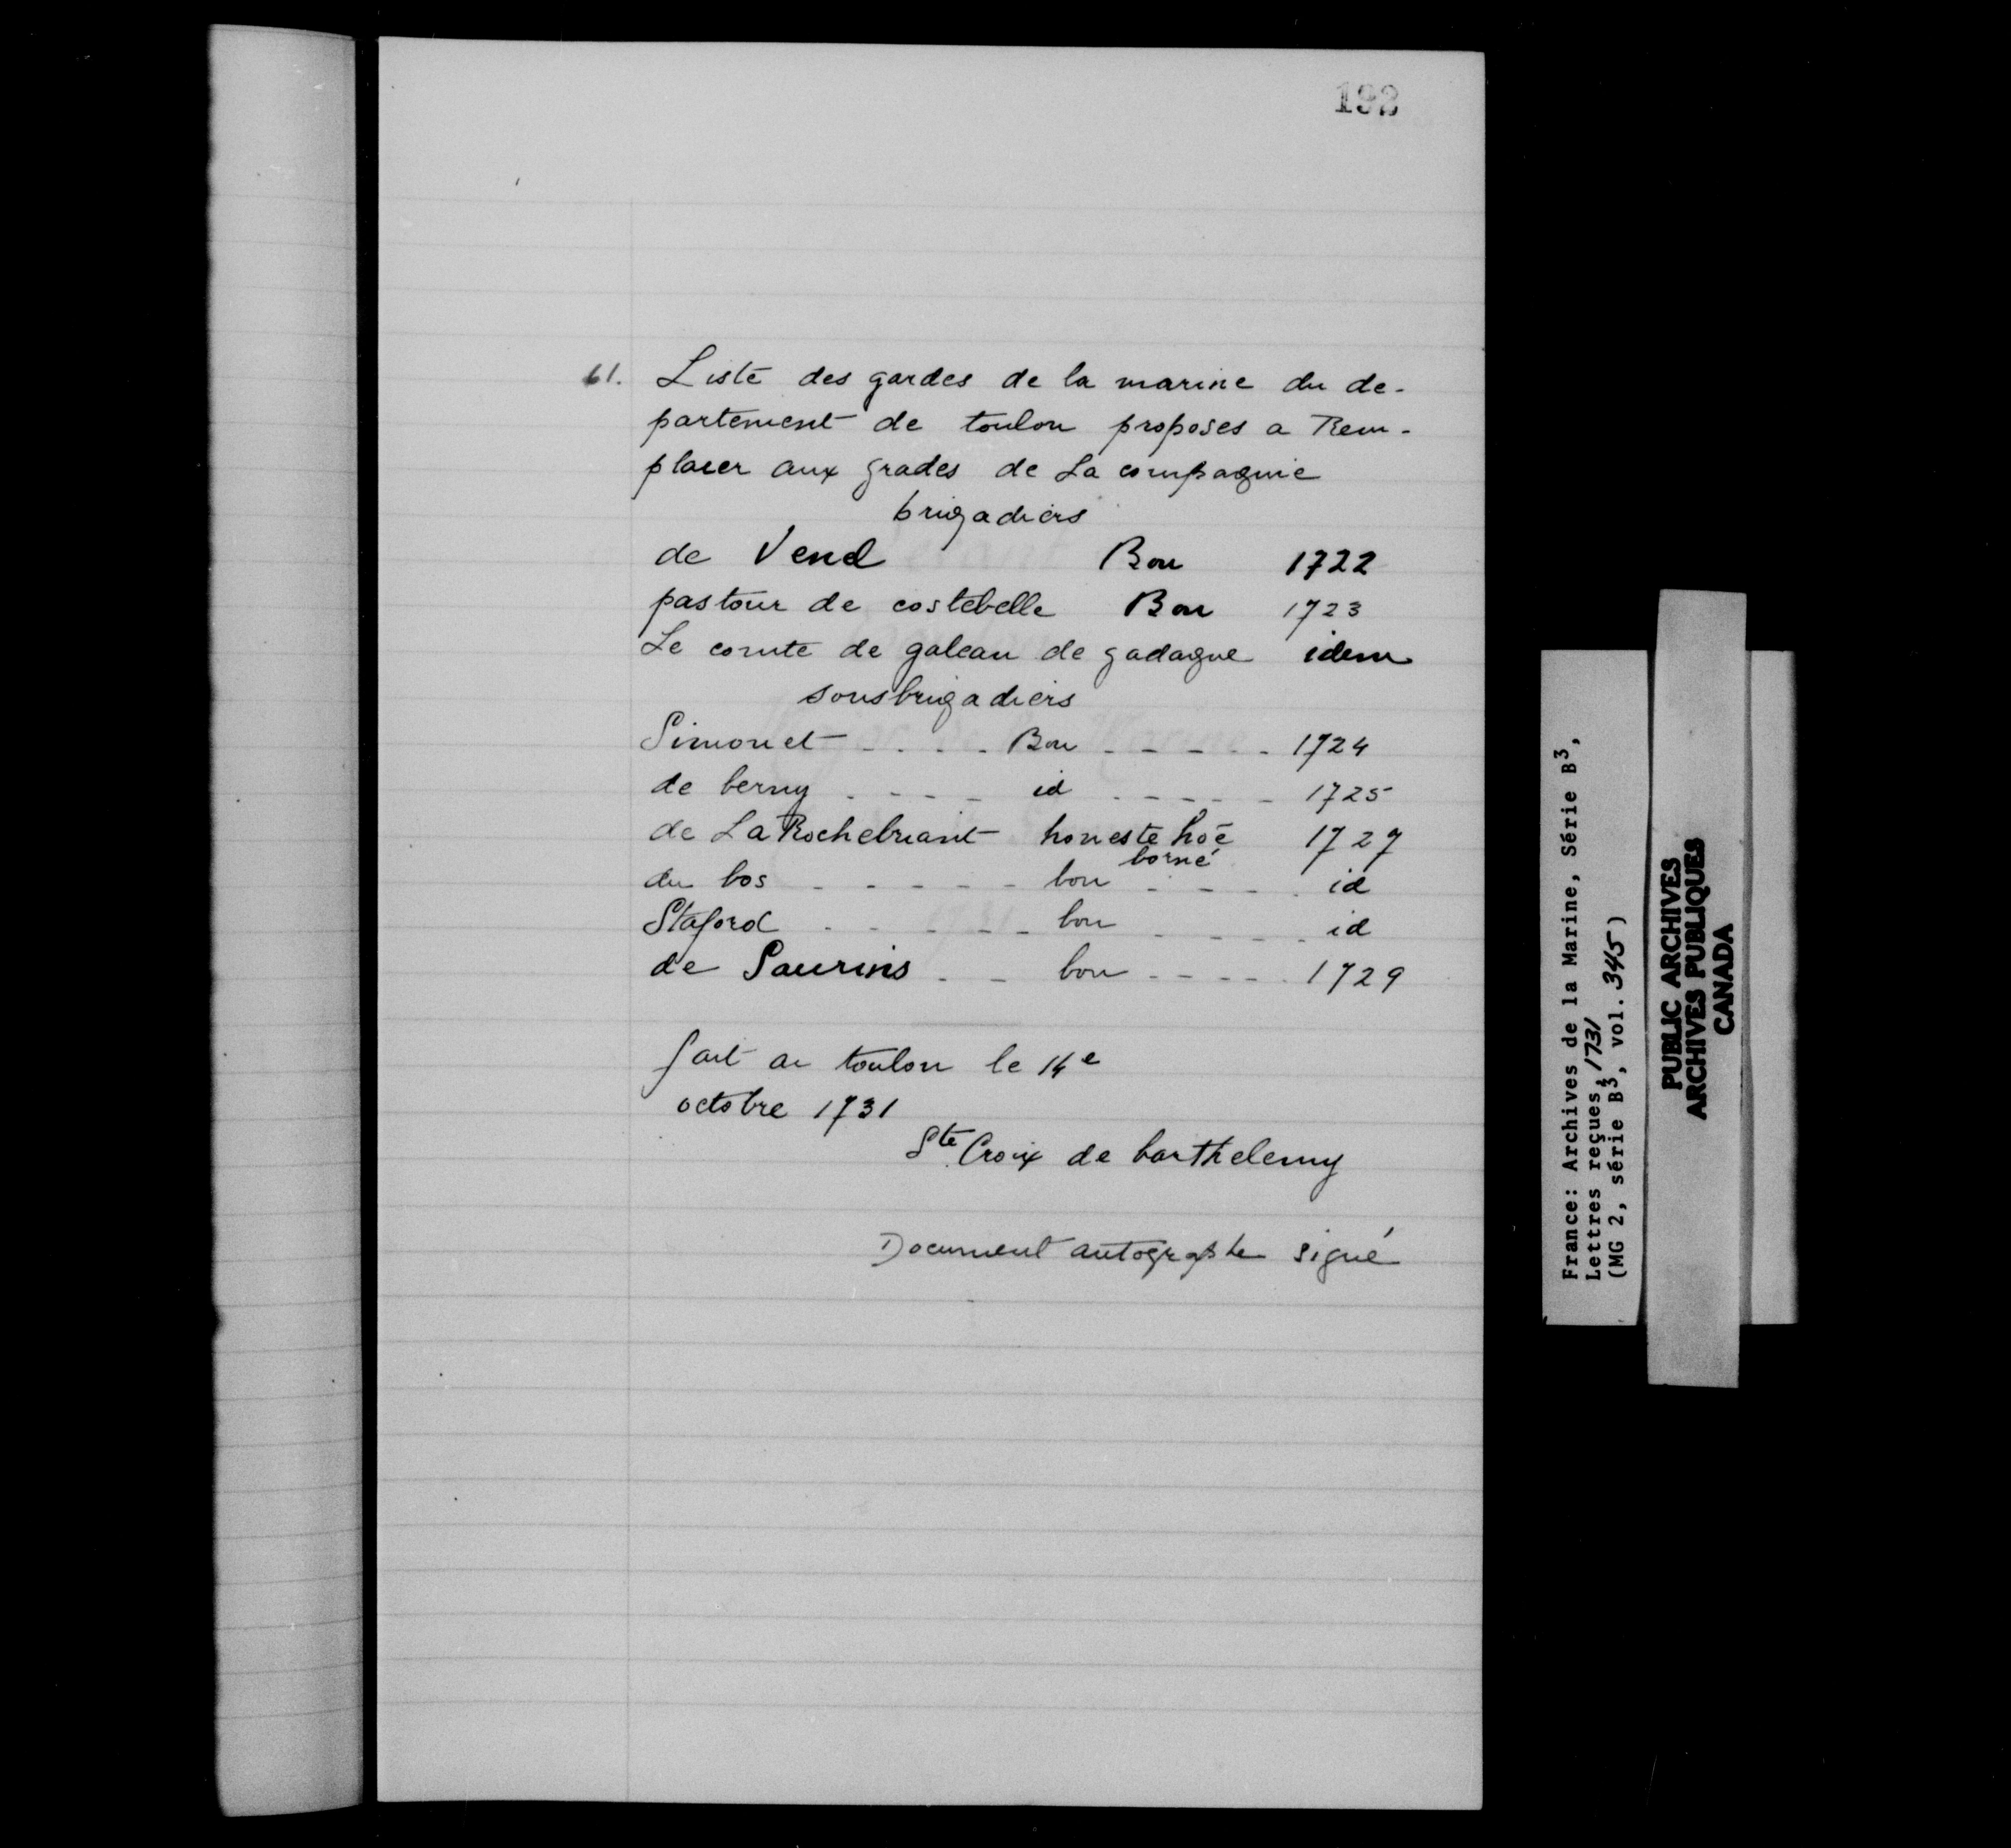 192
61. Liste des gardes de la marine du de-
partement de toulon proposes a Rem-
placer aux grades de La compagnie
brigadiers
de Vend Bon 1722
pastour de costebelle Bon 1723
Le comte de galean de gadagne idem
sousbrigadiers
Simonet - - - - Bon - - - - - 1724
de berny - - - - id - - - - - 1725
de La Rochebriant honeste hoē 1727
borné
du bos - - - - - - bon - - - - id
Staford - - - - - - bon - - - - id
de Saurins - - bon - - - - - 1729
fait a toulon le 14e
octobre 1731
Ste Croix de barthelemy
Document autographe signé
France: Archives de la Marine, Série B3,
Lettres reçues, 1731
(MG 2, série B3, vol. 345)
PUBLIC ARCHIVES
ARCHIVES PUBLIQUES
CANADA